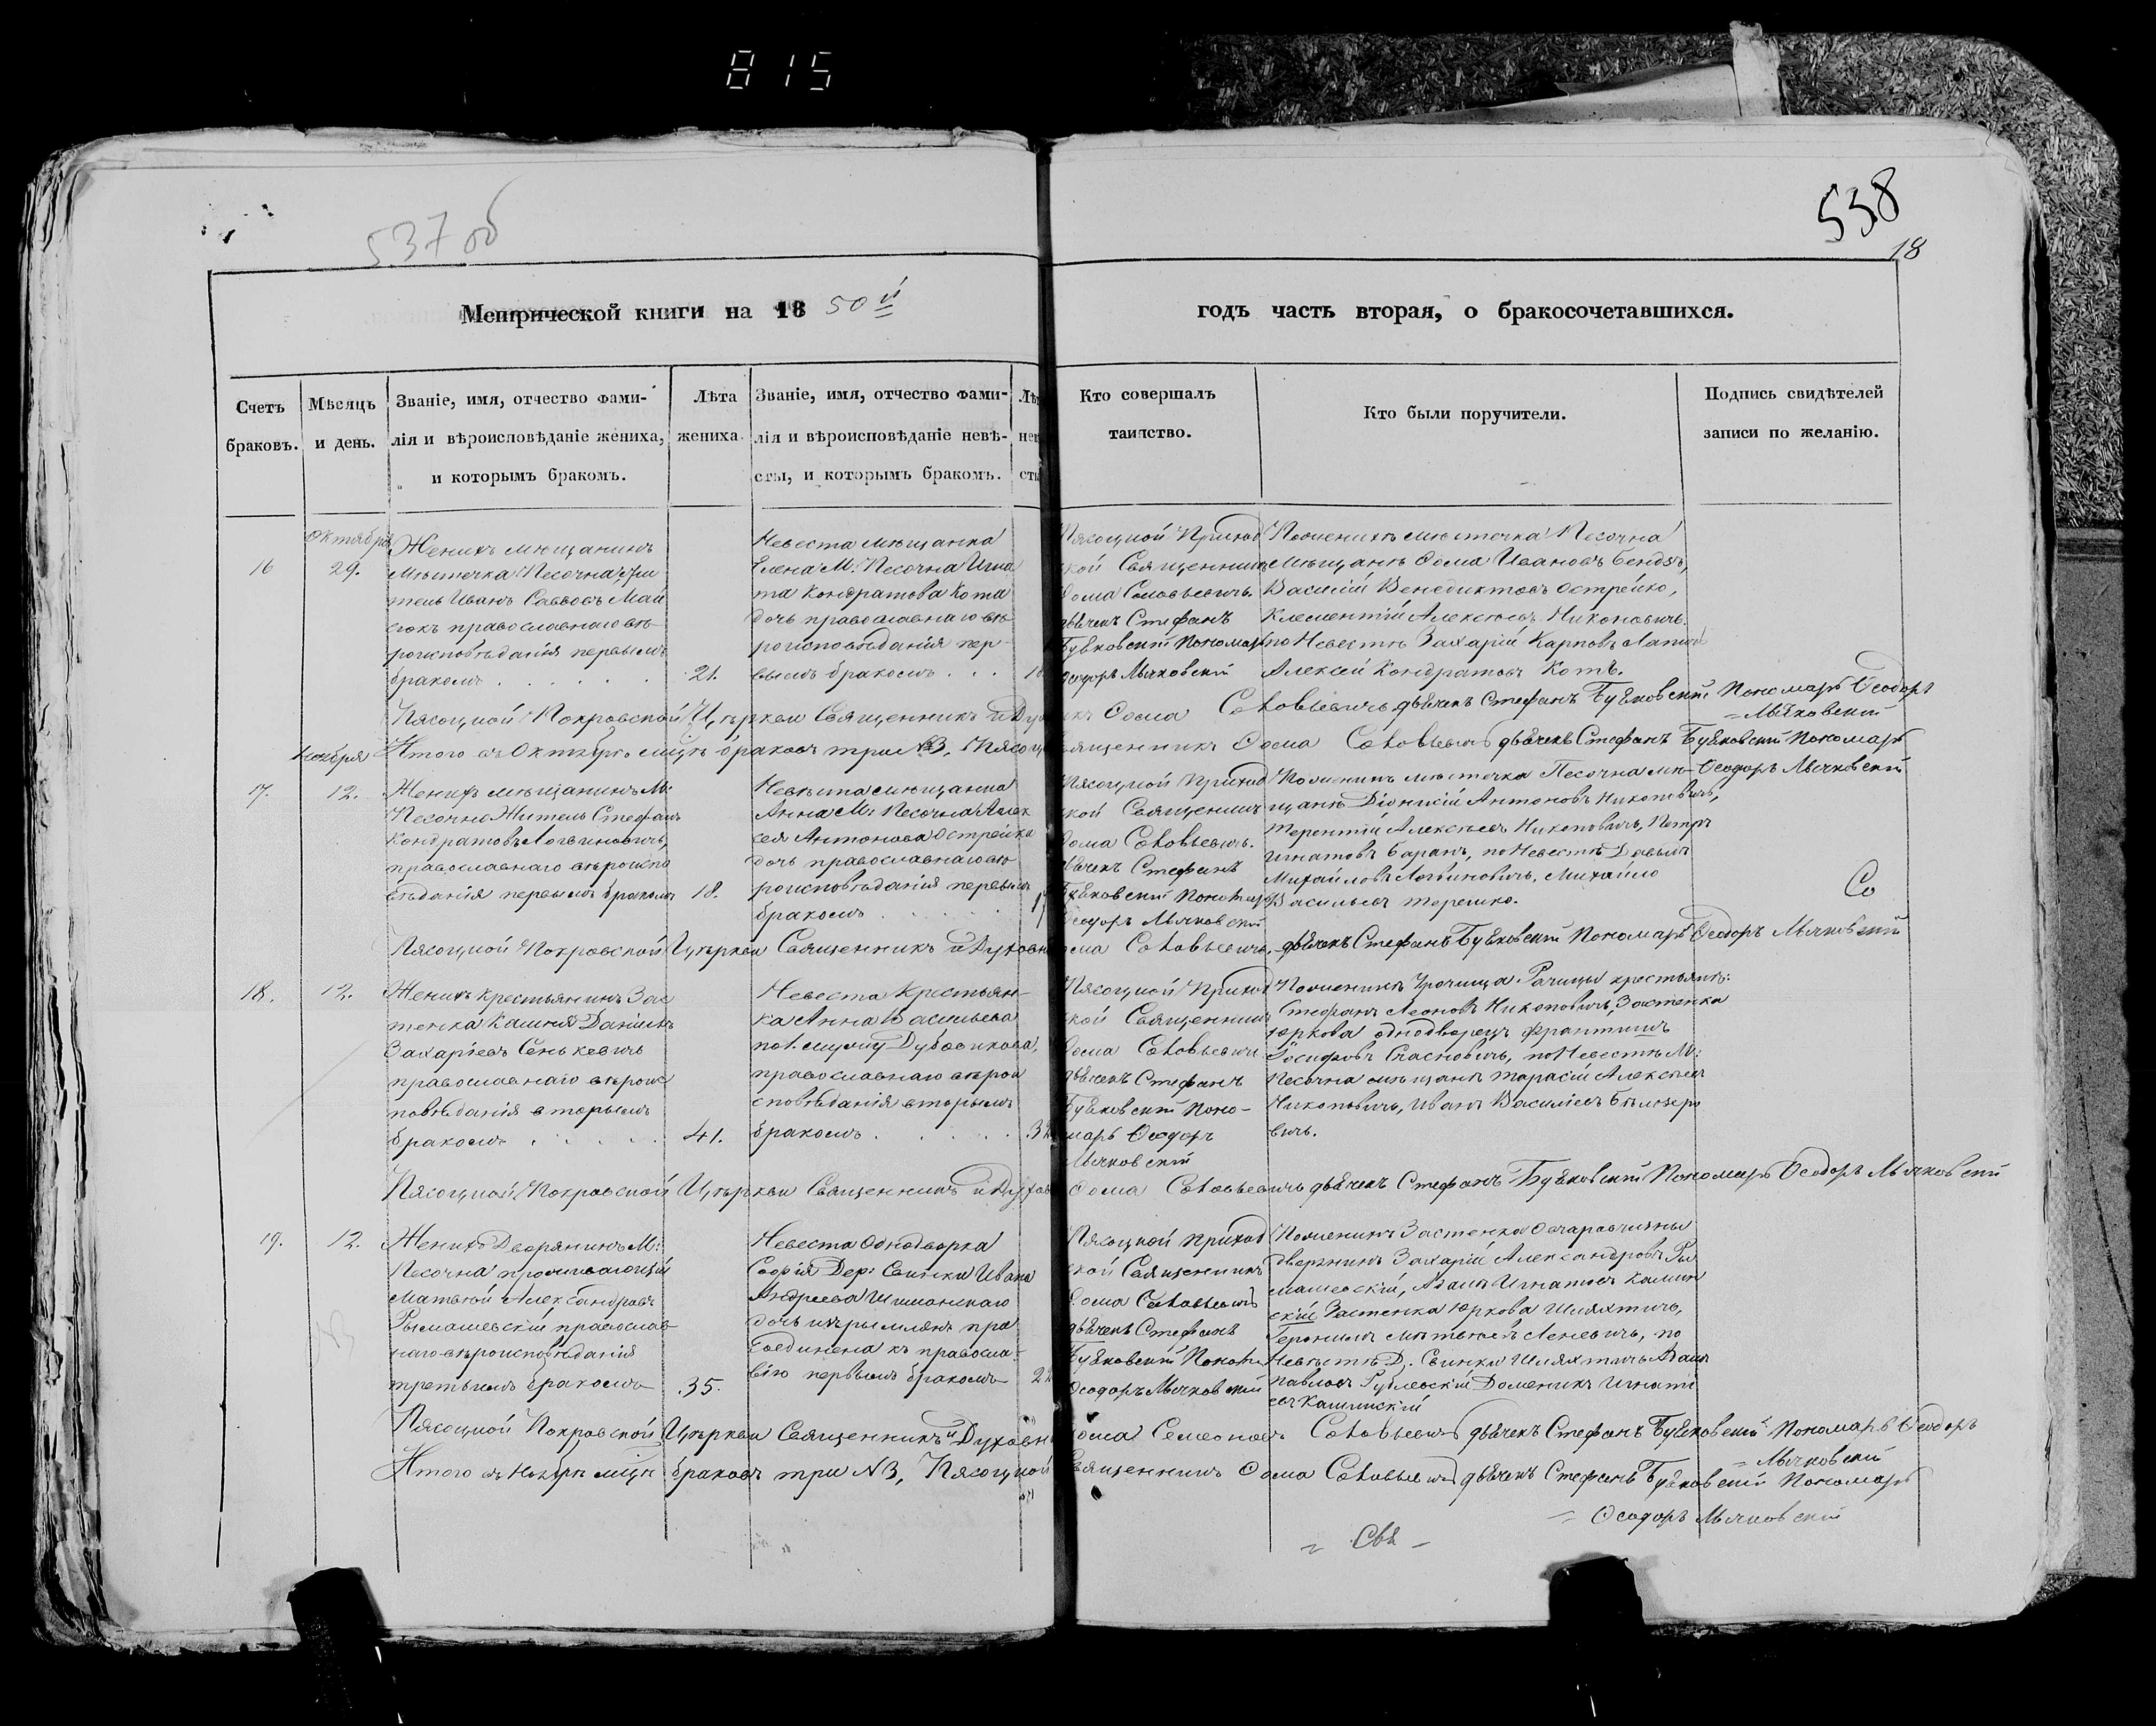 815
537 об
538
18
Метрической книги на 1850й
годъ часть вторая, о бракосочетавшихся.
Счетъ браковъ.
Мѣсяцъ и день.
Званіе, имя, отчество фами-
лія и вѣроисповѣданіе жениха,
и которымъ бракомъ.
Лѣта
жениха.
Званіе, имя, отчество фами-
лія и вѣроисповѣданіе невѣ-
сты, и которымъ бракомъ.
Кто совершалъ
таинство.
Кто были поручители.
Подпись свидѣтелей
записи по желанію.
Октября
16
29.
Женихъ мѣщанинъ
Мѣстечка Песочна жи
тель Иванъ Саввовъ Май
сюкъ православнаго вѣ
роисповѣданія первымъ
бракомъ
21.
Невеста мѣщанка
Елена М: Песочна Игна
та Кондратова Кота
дочь православнаго вѣ
роисповѣданія пер-
вымъ бракомъ
Пясоцкой Приход
ской Священникъ
Ѳома Соловьевичъ.
дьячекъ Стефанъ
Буяковский Пономарь
Ѳеодоръ Мычковский
По женихѣ мѣстечка Песочна
мѣщане Ѳома Ивановъ Бендъ,
Василий Венедиктовъ Острейко,
Клементій Алексѣевъ Никоновичъ.
по Невестѣ Захарій Карповъ
Алексѣй Кондратовъ Котъ.
Пясоцкой Покровской Церкви Священникъ Ѳома Соловьевичъ дьячекъ Стефанъ Буяковский Пономарь Ѳеодоръ
Мычковский
Ноября
Итого въ Октябрѣ мцѣ браковъ три №3, Пясоцкой Священникъ Ѳома Соловьевичъ дьячекъ Стефанъ Буяковский Пономарь
Ѳеодоръ Мычковский
17.
12.
Женихъ мѣщанинъ М:
Песочна Житель Стефанъ
Кондратовъ Логвиновичъ,
православнаго вѣроиспо
вѣданія первымъ бракомъ
18.
Невѣста мѣщанка
Анна М: Песочна Алек
сея Антонова Острейка
дочь православнаго вѣ
роисповѣданія первымъ
бракомъ
Пясоцкой Приход
ской Священникъ
Ѳома Соловьевичъ.
дьячекъ Стефанъ
Буяковский Пономарь
Ѳеодоръ Мычковский
По женихѣ мѣстечка Песочна мѣ-
щане Діонисій Антоновъ Никоновичъ,
Терентій Алексѣевъ Никоновичъ, Петръ
Игнатовъ Баранъ, по Невестѣ Давыдъ
Михайловъ Логвиновичъ, Михайло
Васильевъ Терешко.
Со
Пясоцкой Покровской Церкви Священникъ Ѳома Соловьевичъ, дьячекъ Стефанъ Буяковский Пономарь Ѳеодоръ Мычковский
18.
12.
Женихъ Крестьянинъ Зас
тенка Камня Даніилъ
Захаріевъ Сенькевичъ
православнаго вѣроис
повѣданія вторымъ
бракомъ
41.
Невеста Крестьян-
ка Анна Васильева
по 1. мужу Дубовикова,
православнаго вѣрои
сповѣданія вторымъ
бракомъ
Пясоцкой Приход
ской Священникъ
Ѳома Соловьевичъ
дьячекъ Стефанъ
Буяковский Поно-
марь Ѳеодоръ
Мычковский
По женихѣ Урочища Рачицы крестьяне:
Стефанъ Леоновъ Никоновичъ, Застенка
Юркова однодворецъ Франтишъ
Іосифовъ Спасновичъ, по Невестѣ М:
Песочна мѣщане Тарасій Алексѣевъ
Никоновичъ, Иванъ Василіевъ
вичъ.
Пясоцкой Покровской Церкви Священникъ Ѳома Соловьевичъ дьячекъ Стефанъ Буяковский Пономарь Ѳеодоръ Мычковский
19.
12.
Женихъ Дворянинъ М:
Песочна проживающій
Матвѣй Александровъ
Рымашевскій православ
наго вѣроисповѣданія
третьимъ бракомъ
35.
Невеста Однодворка
Софія Дер: Свинки Ивана
Андреева Шиманскаго
дочь изъ римлянъ при
соединена къ правосла-
вію первымъ бракомъ
Пясоцкой Приход
ской Священникъ
Ѳома Соловьевичъ
дьячекъ Стефанъ
Буяковский Пономарь
Ѳеодоръ Мычковский
По женихѣ Застенка Овчаровчизны
дворянинъ Захарій Александровъ Ры
машевскій, Адамъ Игнатовъ Камин
скій Застенка Юркова Шляхтичъ,
Геронимъ Матвѣевъ Леневичъ, по
Невѣстѣ Д. Свинки Шляхтичъ Адамъ
Павловъ Рублевскій Доменикъ Игнаті
евъ Каминскій
Пясоцкой Покровской Церкви Священникъ Ѳома Семеоновъ Соловьевичъ дьячекъ Стефанъ Буяковский Пономарь Ѳеодоръ
Мычковский
Итого въ Ноябрѣ мцѣ браковъ три №3, Пясоцкой Священникъ Ѳома Соловьевичъ дьячекъ Стефанъ Буяковский Пономарь
Ѳеодоръ Мычковский
Свя